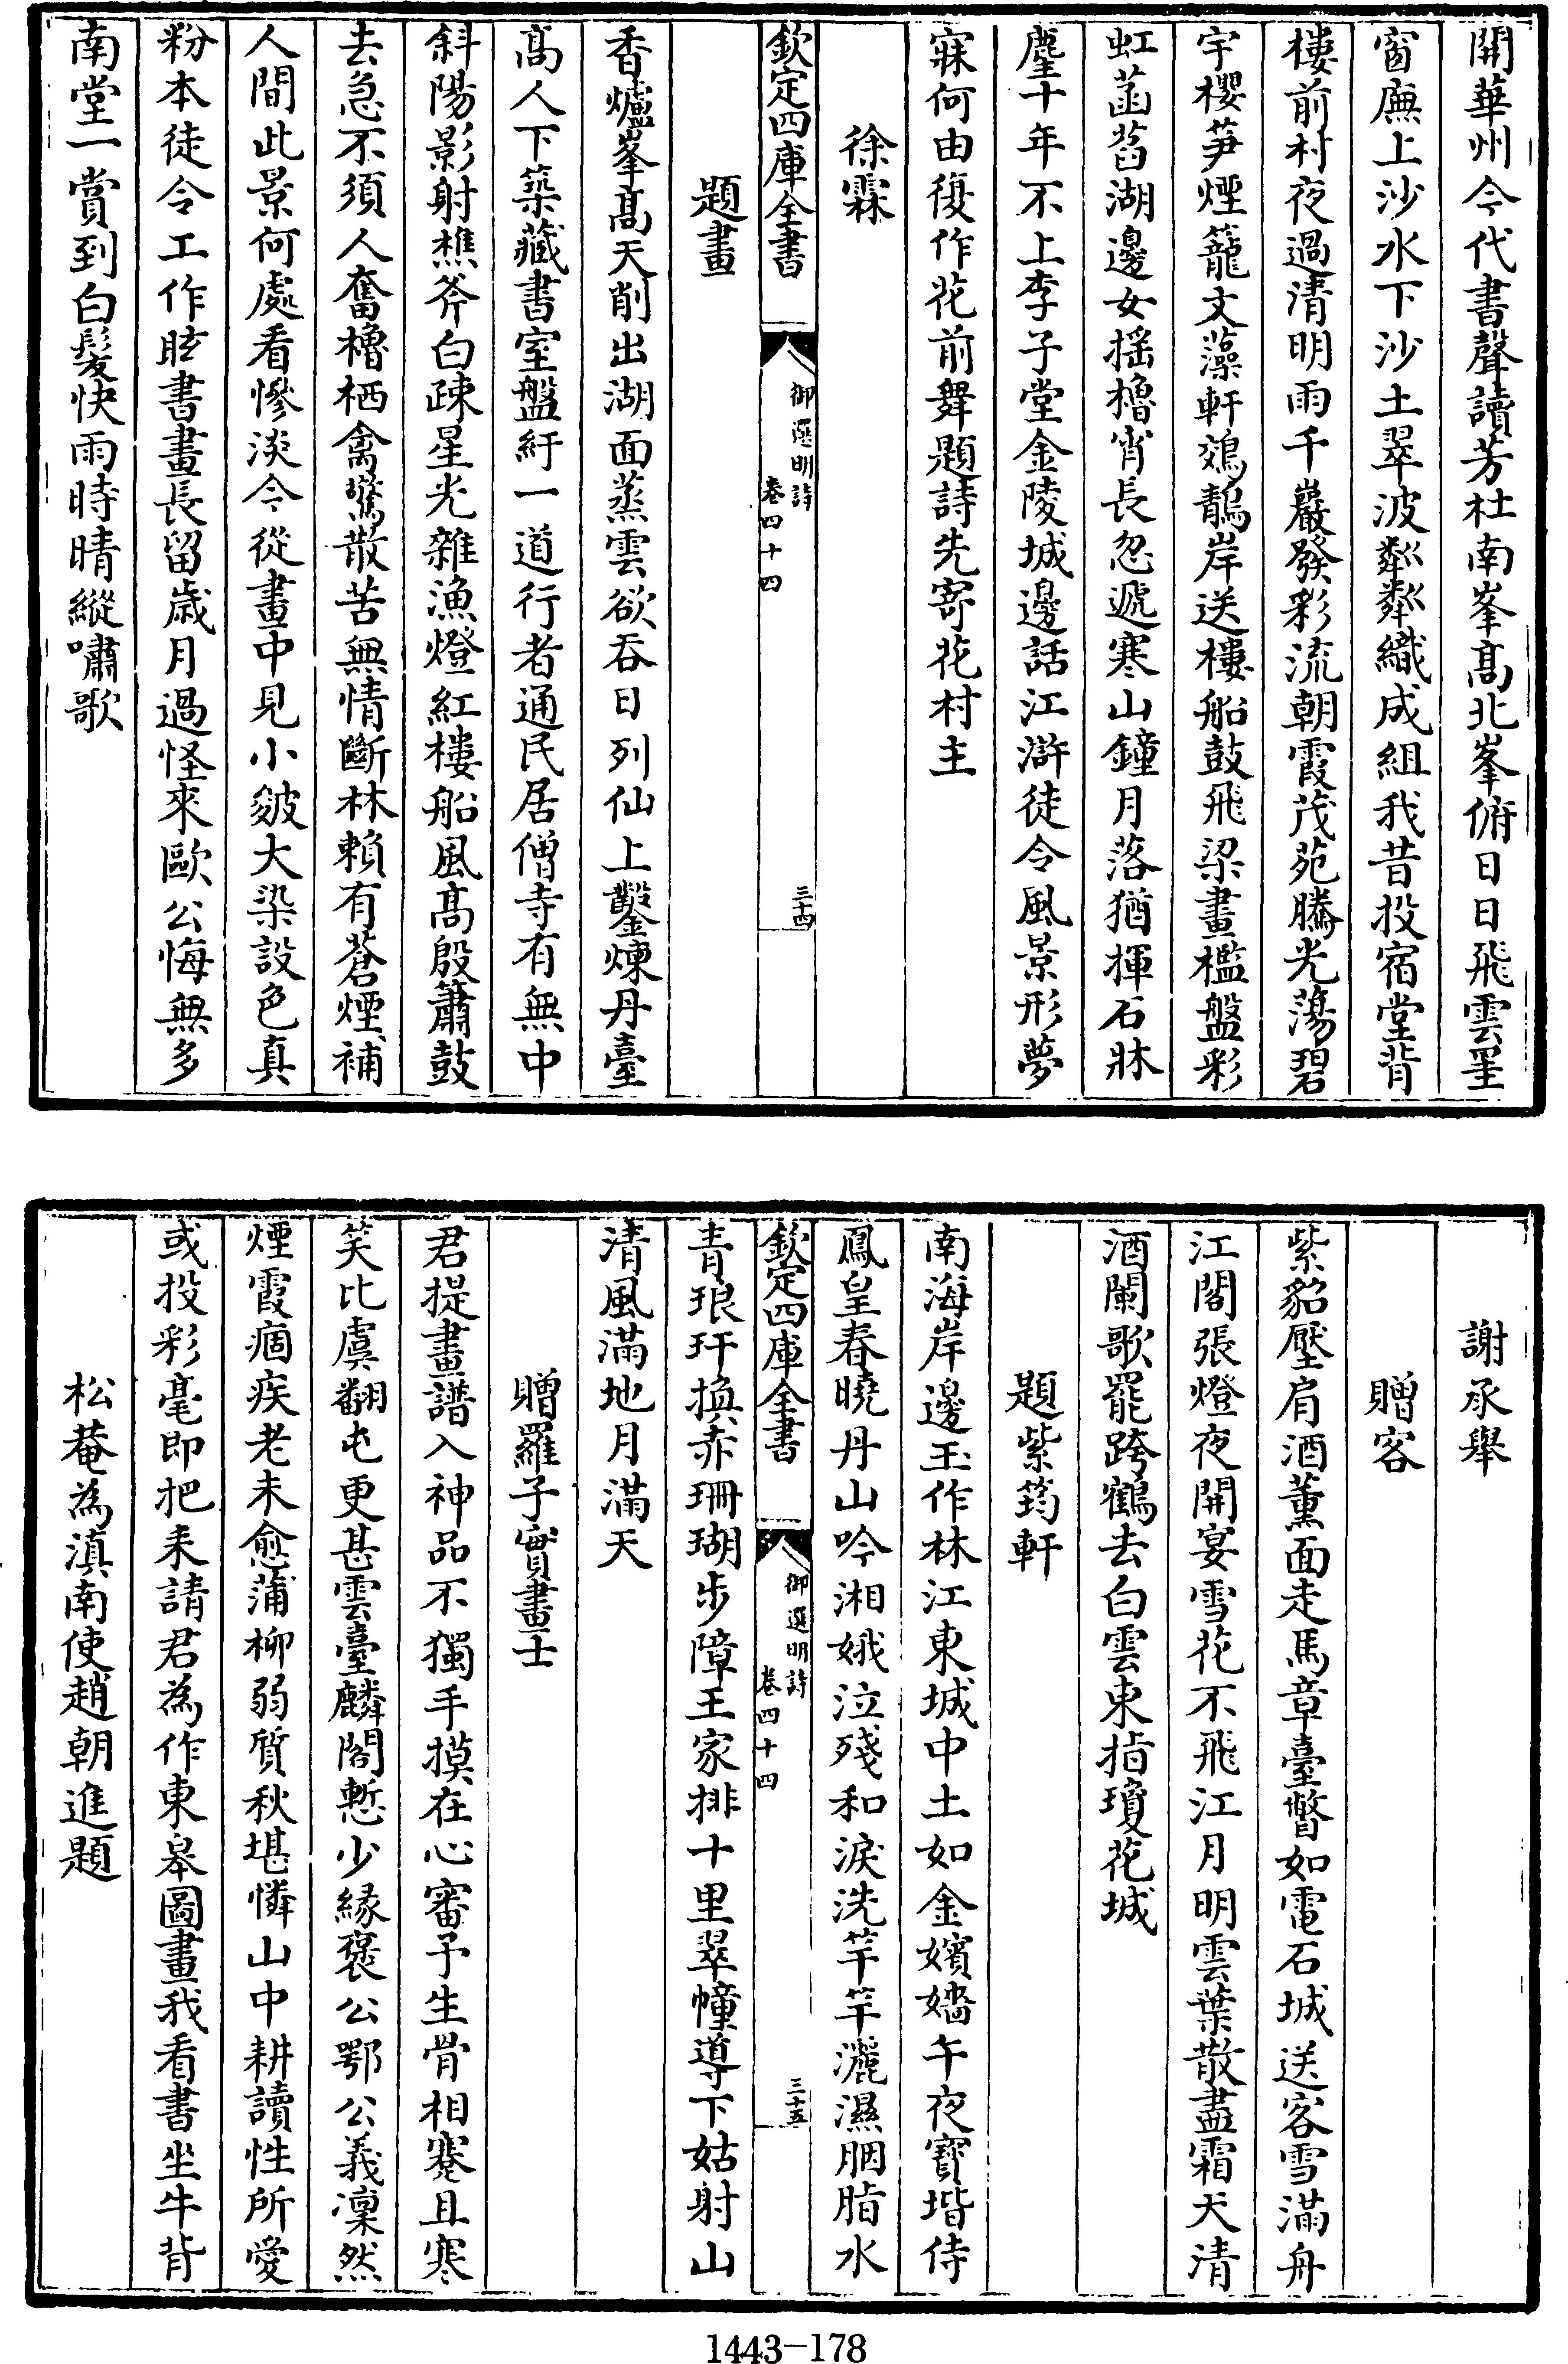 開華州今代書聲讀芳杜南峯髙北峯俯日日飛雲罣
窗廡上沙水下沙土翠波粼粼織成組我昔投宿堂背
樓前村夜過清明雨千巖發彩流朝霞茂苑騰光蕩碧
宇櫻笋煙籠文藻軒鵁鶄岸送樓船鼓飛梁畫檻盤彩
虹菡萏湖邊女揺櫓宵長忽遞寒山鐘月落猶揮石牀
麈十年不上李子堂金陵城邊話江滸徒令風景形夢
寐何由復作花前舞題詩先寄花村主
徐霖
欽定四庫全書
御選明詩
卷四十四
三十四
題畫
香爐峯髙天削出湖面蒸雲欲吞日列仙上鑿煉丹臺
髙人下築藏書室盤紆一道行者通民居僧寺有無中
斜陽影射樵斧白疎星光雜漁燈紅樓船風髙殷簫鼓
去急不須人奮櫓栖禽驚散苦無情斷林頼有蒼煙補
人間此景何處看慘淡今從畫中見小皴大染設色真
粉本徒令工作眩書畫長留歲月過怪來歐公悔無多
南堂一賞到白髪快雨時晴縱嘯歌
謝承舉
贈客
紫貂壓肩酒薰面走馬章臺瞥如電石城送客雪滿舟
江閣張燈夜開宴雪花不飛江月明雲葉散盡霜天清
酒闌歌罷跨鶴去白雲東指瓊花城
題紫筠軒
南海岸邊玉作林江東城中土如金嬪嬙午夜寶堦侍
鳳皇春曉丹山吟湘娥泣殘和淚洗竿竿灑濕胭脂水
欽定四庫全書
御選明詩
卷四十四
三十五
青琅玕換赤珊瑚步障王家排十里翠幢導下姑射山
清風滿地月滿天
贈羅子實畫士
君提畫譜入神品不獨手摸在心審予生骨相蹇且寒
笑比虞翻屯更甚雲臺麟閣慙少緣褒公鄂公義凜然
煙霞痼疾老未愈蒲柳弱質秋堪憐山中耕讀性所愛
或投彩毫即把耒請君為作東皋圖畫我看書坐牛背
松菴為滇南使趙朝進題
1443-178